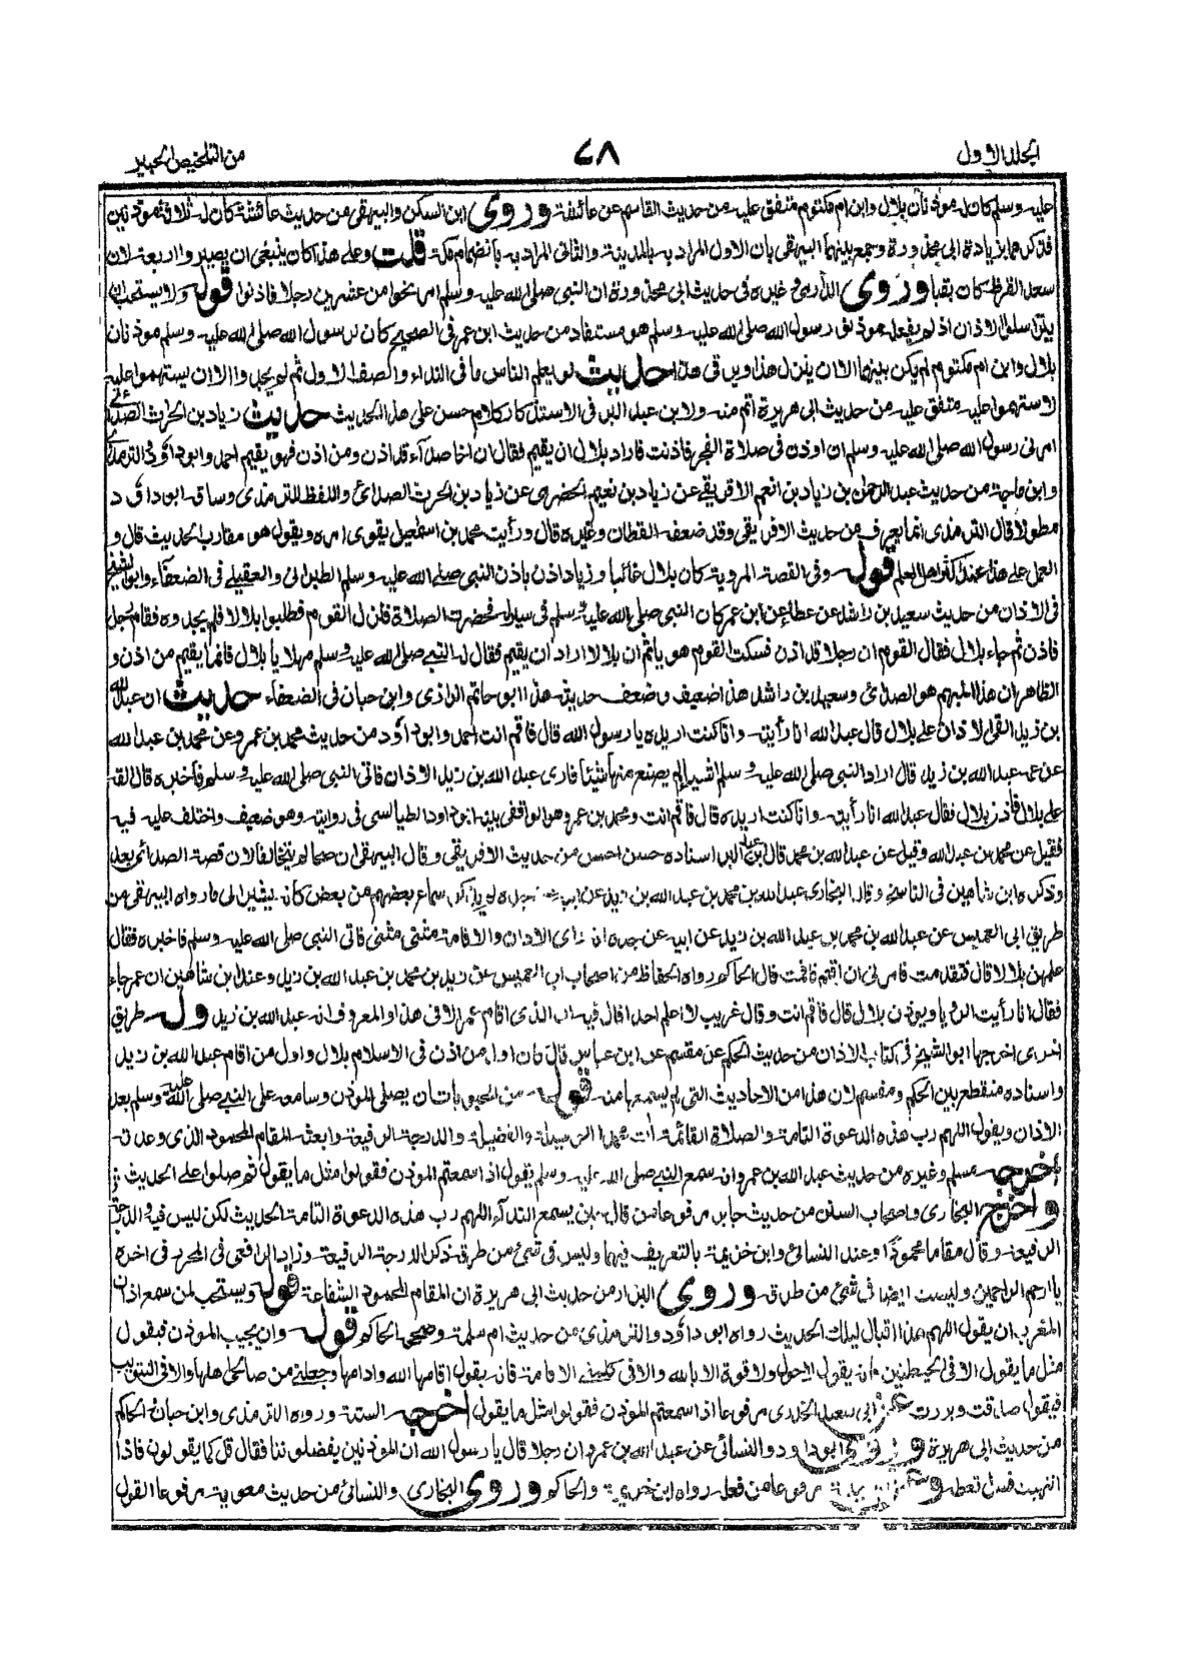 الجلد الاول
٧٨
من التلخيص الحبير
عليه وسلم كان له مؤذنان بلال وابن ام مكتوم متفق عليه من حديث القاسم عن عائشة وروى ابن السكن والبيهقي من حديث عائشة كان له ثلاثة مؤذنين
فذكرهما بزيادة ابي محذورة وجمع بينهما البيهقي بان الاول المراد به بالمدينة والثاني المراد به بانضمام مكة قلت وعلى هذا كان ينبغي ان يصيروا اربعة لان
سعد القرظ كان بقبا وروى الدارمي وغيره في حديث ابي محذورة ان النبي صلى الله عليه وسلم امر نحوا من عشرين رجلا فاذنوا قوله ولا يستحب ان
يتراسلوا الاذان اذ لم يفعله مؤذنو رسول الله صلى الله عليه وسلم هو مستفاد من حديث ابن عمر في الصحيح كان لرسول الله صلى الله عليه وسلم مؤذنان
بلال وابن ام مكتوم لم يكن بينهما الا ان ينزل هذا ويرقى هذا حديث لو يعلم الناس ما في النداء والصف الاول ثم لم يجدوا الا ان يستهموا عليه
لاستهموا عليه متفق عليه من حديث ابي هريرة اتم منه ولابن عبد البر في الاستذكار كلام حسن على هذا الحديث حديث زياد بن الحرث الصدائي
امرني رسول الله صلى الله عليه وسلم ان اوذن في صلاة الفجر فاذنت فاراد بلال ان يقيم فقال ان اخا صداء قد اذن ومن اذن فهو يقيم احمد وابو داود والترمذي
وابن ماجة من حديث عبد الرحمن بن زياد بن انعم الافريقي عن زياد بن نعيم الحضرمي عن زياد بن الحرث الصدائي واللفظ للترمذي وساقه ابو داود
مطولا قال الترمذي انما يعرف من حديث الافريقي وقد ضعفه القطان وغيره قال ورأيت محمد بن اسمعيل يقوي امره ويقول هو مقارب الحديث قال و
العمل على هذا عند اكثر اهل العلم قوله وفي القصة المروية كان بلال غائبا وزياد اذن باذن النبي صلى الله عليه وسلم الطبراني والعقيلي في الضعفاء وابو الشيخ
في الاذان من حديث سعيد بن راشد عن عطاء عن ابن عمر كان النبي صلى الله عليه وسلم في سير له فحضرت الصلاة فنزل القوم فطلبوا بلالا فلم يجدوه فقام رجل
فاذن ثم جاء بلال فقال القوم ان رجلا قد اذن فسكت القوم هويا ثم ان بلالا اراد ان يقيم فقال له النبي صلى الله عليه وسلم مهلا يا بلال فانما يقيم من اذن و
الظاهر ان هذا المبهم هو الصدائي وسعيد بن راشد هذا ضعيف وضعف حديثه هذا ابو حاتم الرازي وابن حبان في الضعفاء حديث ان عبد الله
بن زيد القى الاذان على بلال قال عبد الله انا رأيته وانا كنت اريده يا رسول الله قال فاقم انت احمد وابو داود من حديث محمد بن عمرو عن محمد بن عبد الله
عن عمه عبد الله بن زيد قال اراد النبي صلى الله عليه وسلم اشياء لم يصنع منها شيئا فاري عبد الله بن زيد الاذان فاتى النبي صلى الله عليه وسلم فاخبره قال القه
على بلال فاذن بلال فقال عبد الله انا رأيته وانا كنت اريده قال فاقم انت ومحمد بن عمرو هو الواقفي بينه ابو داود الطيالسي في روايته وهو ضعيف واختلف عليه فيه
فقيل عن محمد بن عبد الله وقيل عن عبد الله بن محمد قال ابن عبد البر اسناده حسن احسن من حديث الافريقي وقال البيهقي ان صحا لم يتخالفا لان قصة الصدائي بعد
وذكره ابن شاهين في الناسخ وقال البخاري عبد الله بن محمد بن عبد الله بن زيد عن ابيه عن جده لم يذكر سماع بعضهم من بعض كانه يشير الى ما رواه البيهقي من
طريق ابي العميس عن عبد الله بن محمد بن عبد الله بن زيد عن ابيه عن جده انه راى الاذان والاقامة مثنى مثنى فاتى النبي صلى الله عليه وسلم فاخبره فقال
علمهن بلالا قال فتقدمت فامرني ان اقيم فاقمت قال الحاكم رواه الحفاظ من اصحاب ابي العميس عن زيد بن محمد بن عبد الله بن زيد وعند ابن شاهين ان عمر جاء
فقال انا رأيت الرؤيا ويؤذن بلال قال فاقم انت وقال غريب لا اعلم احدا قال فيه ان الذي اقام عمر الا في هذا والمعروف انه عبد الله بن زيد وله طريق
اخرى اخرجها ابو الشيخ في كتاب الاذان من حديث الحكم عن مقسم عن ابن عباس قال كان اول من اذن في الاسلام بلال واول من اقام عبد الله بن زيد
واسناده منقطع بين الحكم ومقسم لان هذا من الاحاديث التي لم يسمعها منه قوله من المحبوبات ان يصلي المؤذن وسامعه على النبي صلى الله عليه وسلم بعد
الاذان ويقول اللهم رب هذه الدعوة التامة والصلاة القائمة ات محمدا الوسيلة والفضيلة والدرجة الرفيعة وابعثه المقام المحمود الذي وعدته
اخرجه مسلم وغيره من حديث عبد الله بن عمرو انه سمع النبي صلى الله عليه وسلم يقول اذا سمعتم المؤذن فقولوا مثل ما يقول ثم صلوا علي الحديث
واخرج البخاري واصحاب السنن من حديث جابر مرفوعا من قال حين يسمع النداء اللهم رب هذه الدعوة التامة الحديث لكن ليس فيه والدرجة
الرفيعة وقال مقاما محمودا وعند النسائي وابن خزيمة بالتعريف فيهما وليس في شيء من طرقه ذكر الدرجة الرفيعة وزاد الرافعي في المحرر في اخره
يا ارحم الراحمين وليست ايضا في شيء من طرقه وروى البزار من حديث ابي هريرة ان المقام المحمود الشفاعة قوله ويستحب لمن سمع اذان
المغرب ان يقول اللهم هذا اقبال ليلك الحديث رواه ابو داود والترمذي من حديث ام سلمة وصححه الحاكم قوله وان يجيب المؤذن فيقول
مثل ما يقول الا في الحيعلتين فانه يقول لا حول ولا قوة الا بالله والا في كلمتي الاقامة فانه يقول اقامها الله وادامها وجعلني من صالحي اهلها والا في التثويب
فيقول صدقت وبررت عن ابي سعيد الخدري مرفوعا اذا سمعتم المؤذن فقولوا مثل ما يقول اخرجه الستة ورواه الترمذي وابن حبان والحاكم
من حديث ابي هريرة وروى ابو داود والنسائي عن عبد الله بن عمرو ان رجلا قال يا رسول الله ان المؤذنين يفضلوننا فقال قل كما يقولون فاذا
انتهيت فسل تعطه مرفوعا من فعله رواه ابن خزيمة والحاكم وروى البخاري والنسائي من حديث معوية مرفوعا القول